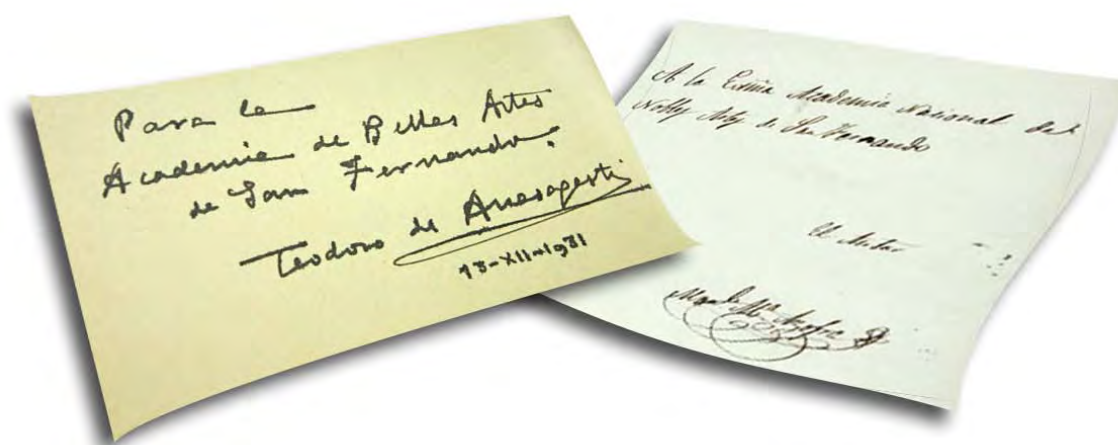 Para la
Academia de Bellas Artes
de San Fernando.
Teodoro de Anasagasti
13-XII-1931
A la Exma Academia Nacional de
Nobles Artes de San Fernando
El Autor